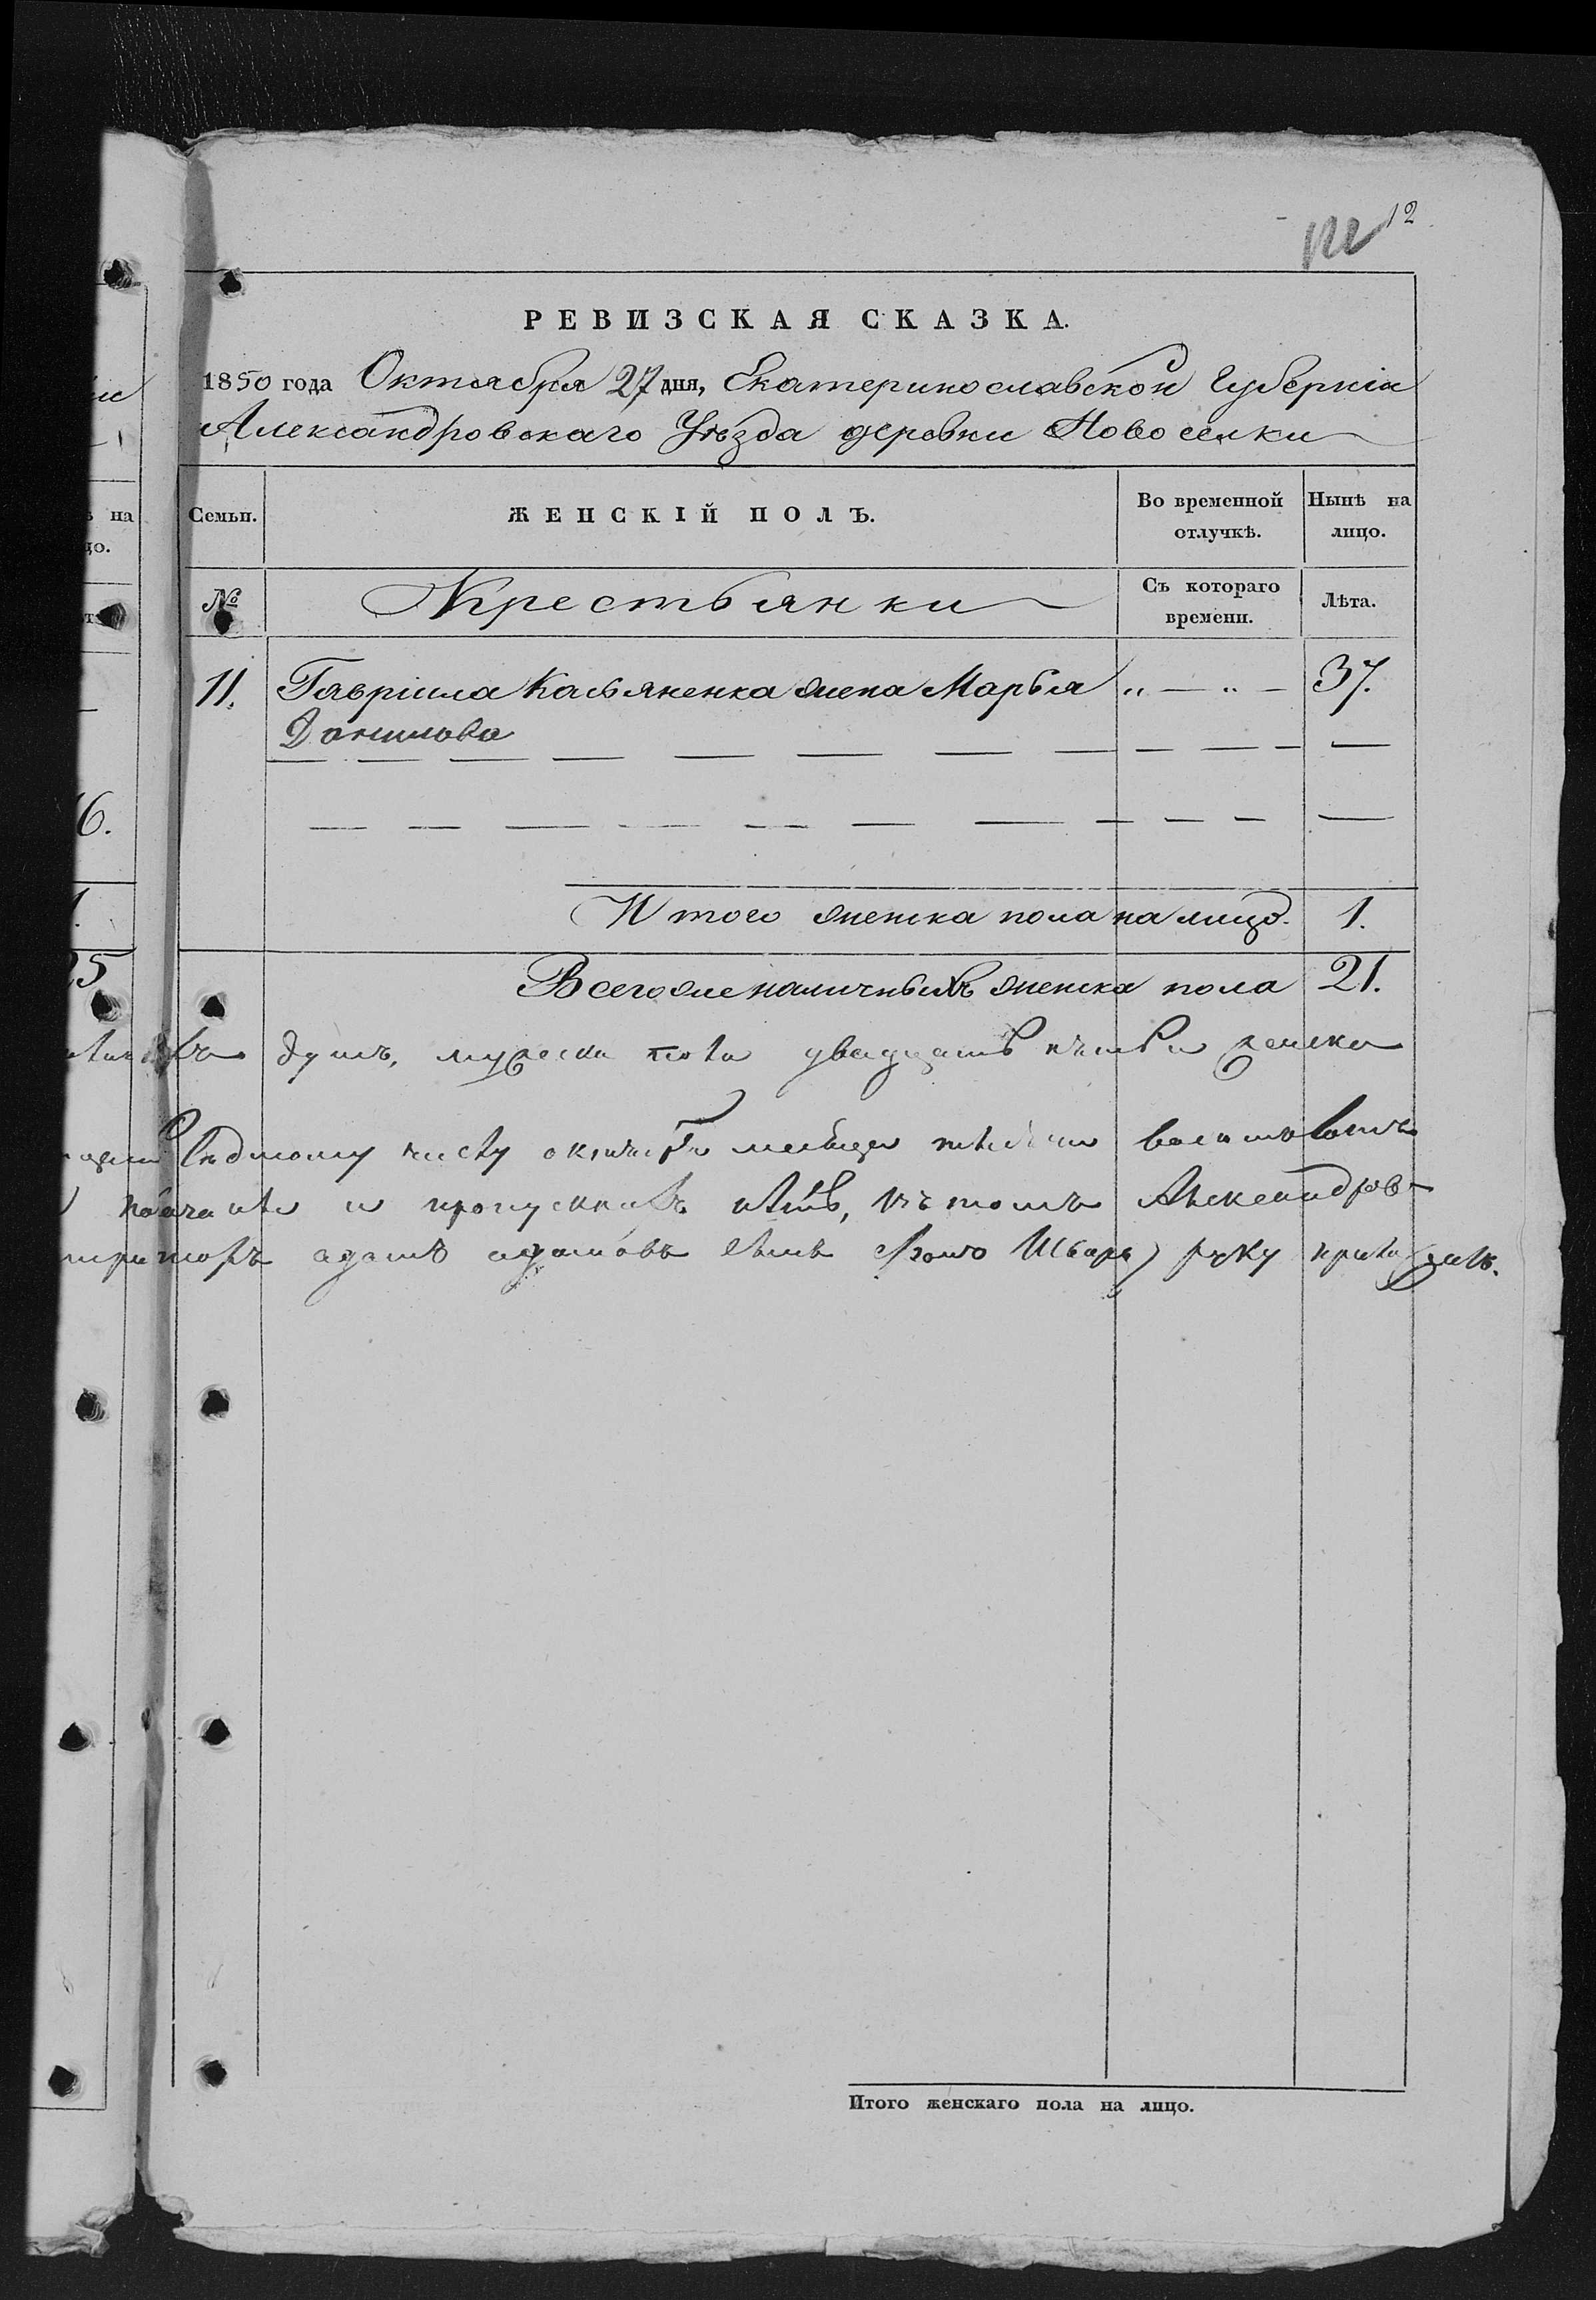 12
РЕВИЗСКАЯ СКАЗКА.
1850 года Октября 27 дня, Екатеринославской Губерніи
Александровскаго Уѣзда деревни Новоселки
на
Семьи.
ЖЕНСКІЙ ПОЛЪ.
Во временной отлучкѣ.
Нынѣ на лицо.
№
Крестьянки
Съ котораго времени.
Лѣта.
11. Гавріила Касьяненка жена Марья „ — „ — 37.
Данилова
6.
Итого женска пола на лицо. 1.
Всего же наличныхъ женска пола 21.
25
душъ, мужеска пола двадцать пять и женска
седмому числу октября месяца
и пропускавъ нѣтъ, въ томъ Александров-
адамъ адамовъ сынъ руку приложилъ.
Итого женскаго пола на лицо.